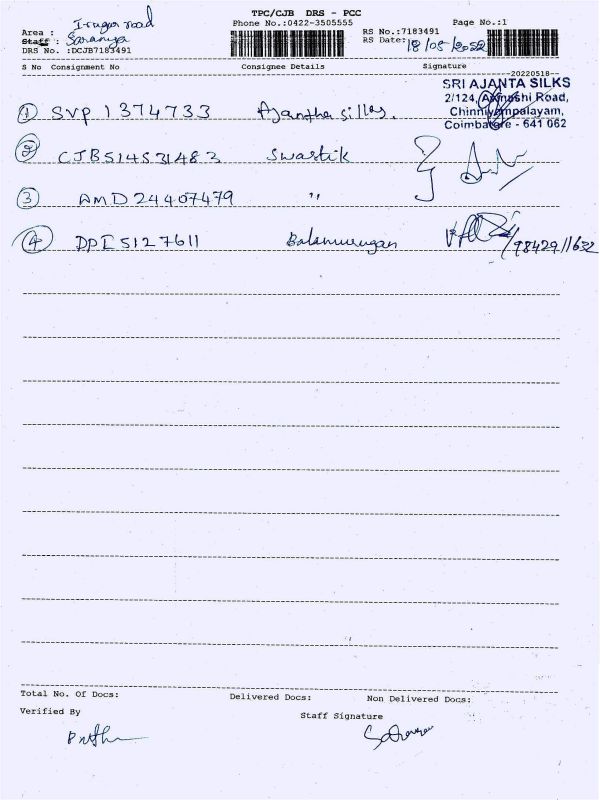 TPC/CJB DRS - PCC
Phone No.:0422-3505555
Page No.:1
Area : Irugur road
Staff :
DRS No. :DCJB7183491
RS No.:7183491
RS Date: 18/05/2022
S No Consignment No Consignee Details Signature
--20220518--
SRI AJANTA SILKS
2/124, Avinashi Road,
Chinniyampalayam,
Coimbatore - 641 062
1 SVP 1374733 Ajantha silks.
2 CJB514531483 Swastik
3 AMD24407479 "
4 DPI5127611 Balamurugan /9842911632
Total No. Of Docs: Delivered Docs: Non Delivered Docs:
Verified By
Staff Signature